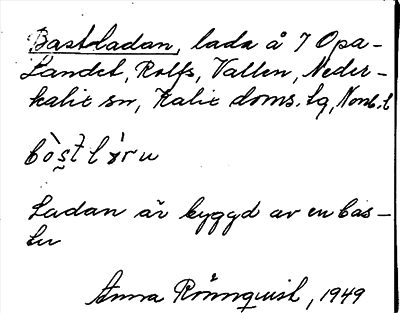 Bastuladan, lada å 7 Opa-
Landet, Rolfs, Vallen, Neder-
kalix sn, Kalix doms. lg, Norrb. l
Ladan är byggd av en bas-
tu
Anna Rönnquist, 1949